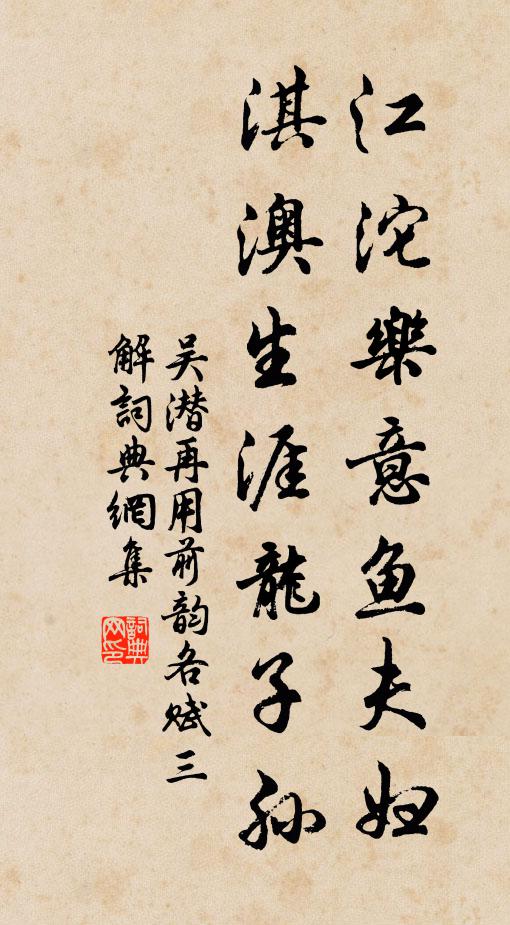 江沱樂意鱼夫妇
淇澳生涯龍子孙
吴潜再用前韵各赋三
解詞典網集
詞典网印